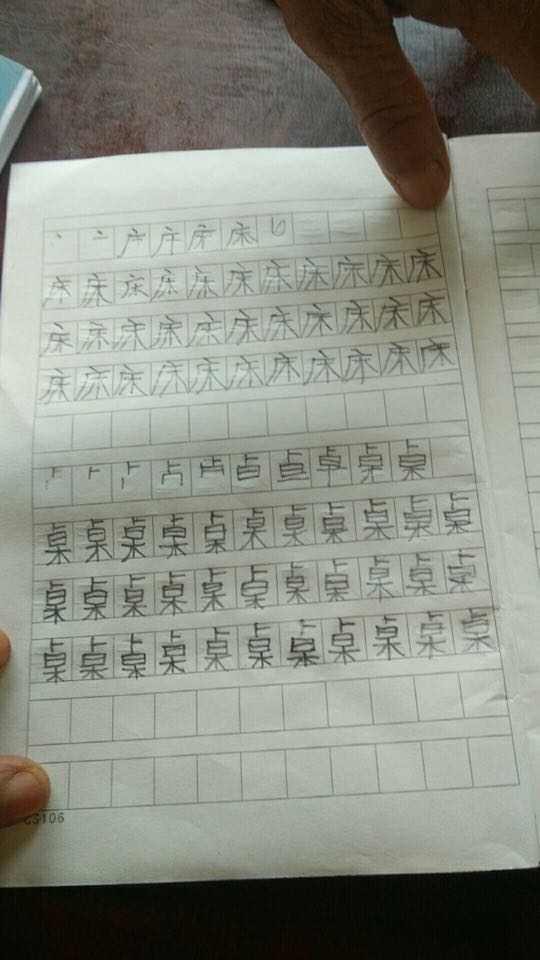 丶 亠 广 床 6
床 床 床 床 床 床 床 床 床 床 床
床 床 床 床 床 床 床 床 床 床 床
床 床 床 床 床 床 床 床 床 床 床
丨 卜 卓 桌
桌 桌 桌 桌 桌 桌 桌 桌 桌 桌 桌
桌 桌 桌 桌 桌 桌 桌 桌 桌 桌 桌
桌 桌 桌 桌 桌 桌 桌 桌 桌 桌 桌
CS106